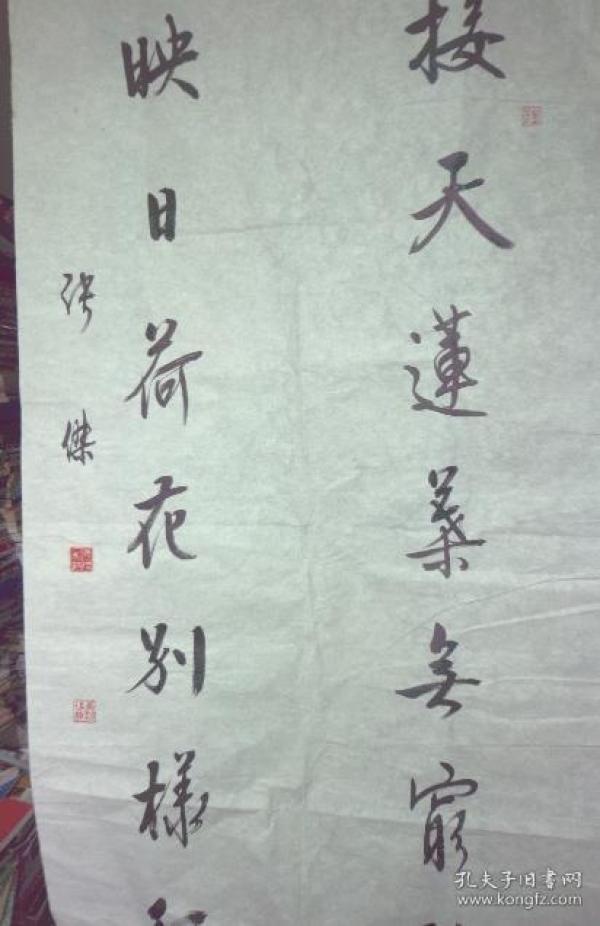 接天蓮葉無窮
映日荷花別樣紅
張傑
孔夫子旧书网
www.kongfz.com